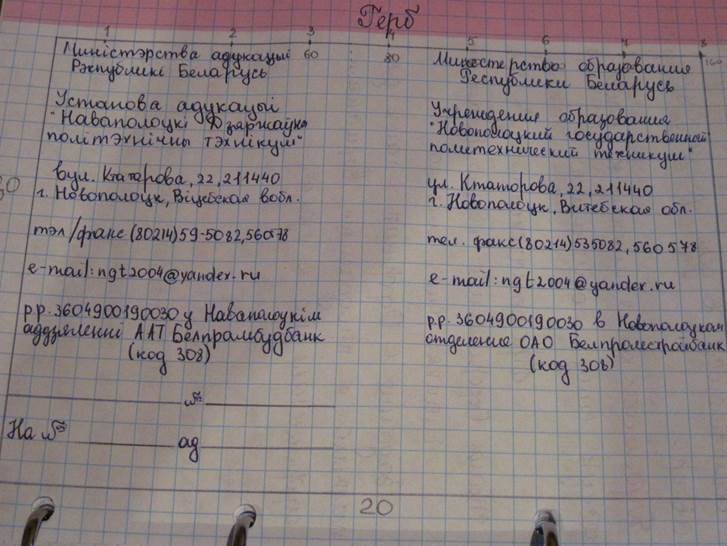 Герб
1 2 3 4 5 6 7 8
60 80 160
Міністэрства адукацыі
Рэспублікі Беларусь
Установа адукацыі
"Наваполоцкі Дзяржаўны
політэхнічны тэхнікум"
вул. Ктаторова, 22, 211440
г. Новополоцк, Віцебская вобл.
тэл/факс (80214) 59-5082, 560578
e-mail: ngt2004@yandex.ru
р.р. 3604900190030 у Наваполоцкім
аддзяленні ААТ Белпрамбудбанк
(код 308)
№
На № ад
Министерство образования
Республики Беларусь
Учреждения образования
"Новополоцкий государственный
политехнический техникум"
ул. Ктаторова, 22, 211440
г. Новополоцк, Витебская обл.
тел. факс (80214) 535082, 560578
e-mail: ngt2004@yandex.ru
р.р. 3604900190030 в Новополоцком
отделение ОАО Белпромстройбанк
(код 308)
20